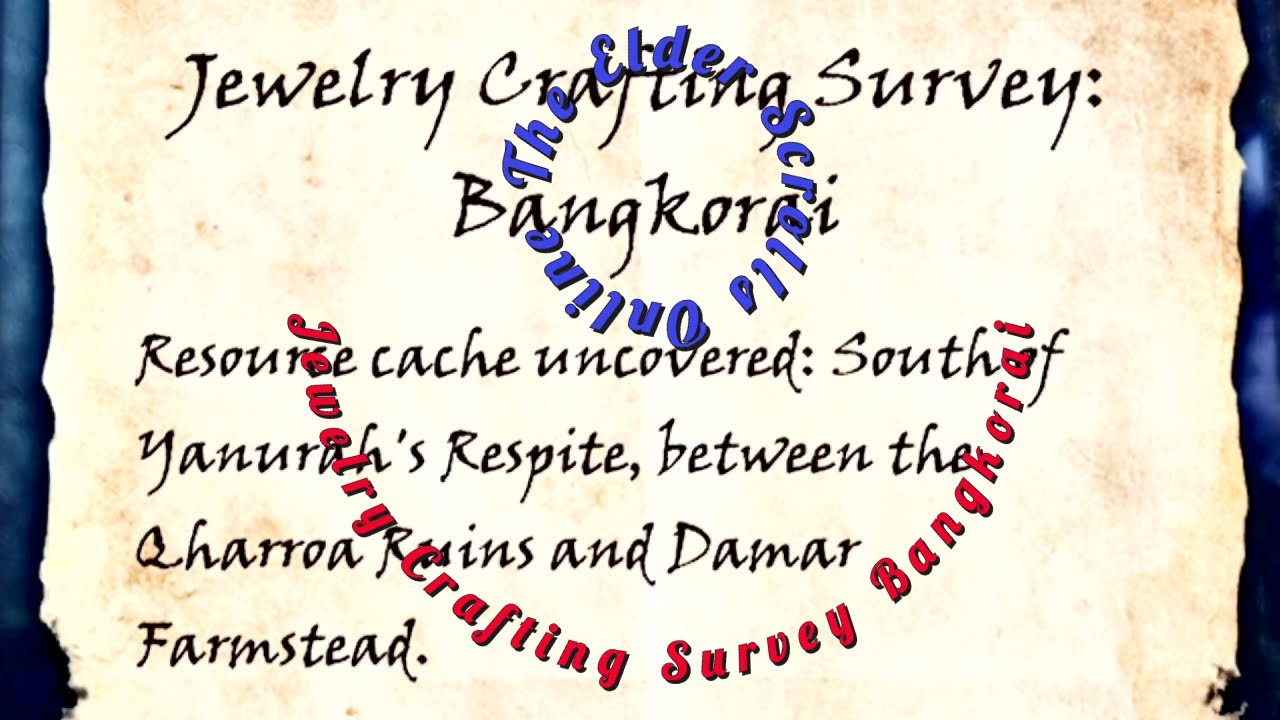 Jewelry Crafting Survey:
Bangkorai
Resource cache uncovered: South of
Yanurah's Respite, between the
Qharroa Ruins and Damar
Farmstead.
The Elder Scrolls Online
Jewelry Crafting Survey Bangkorai